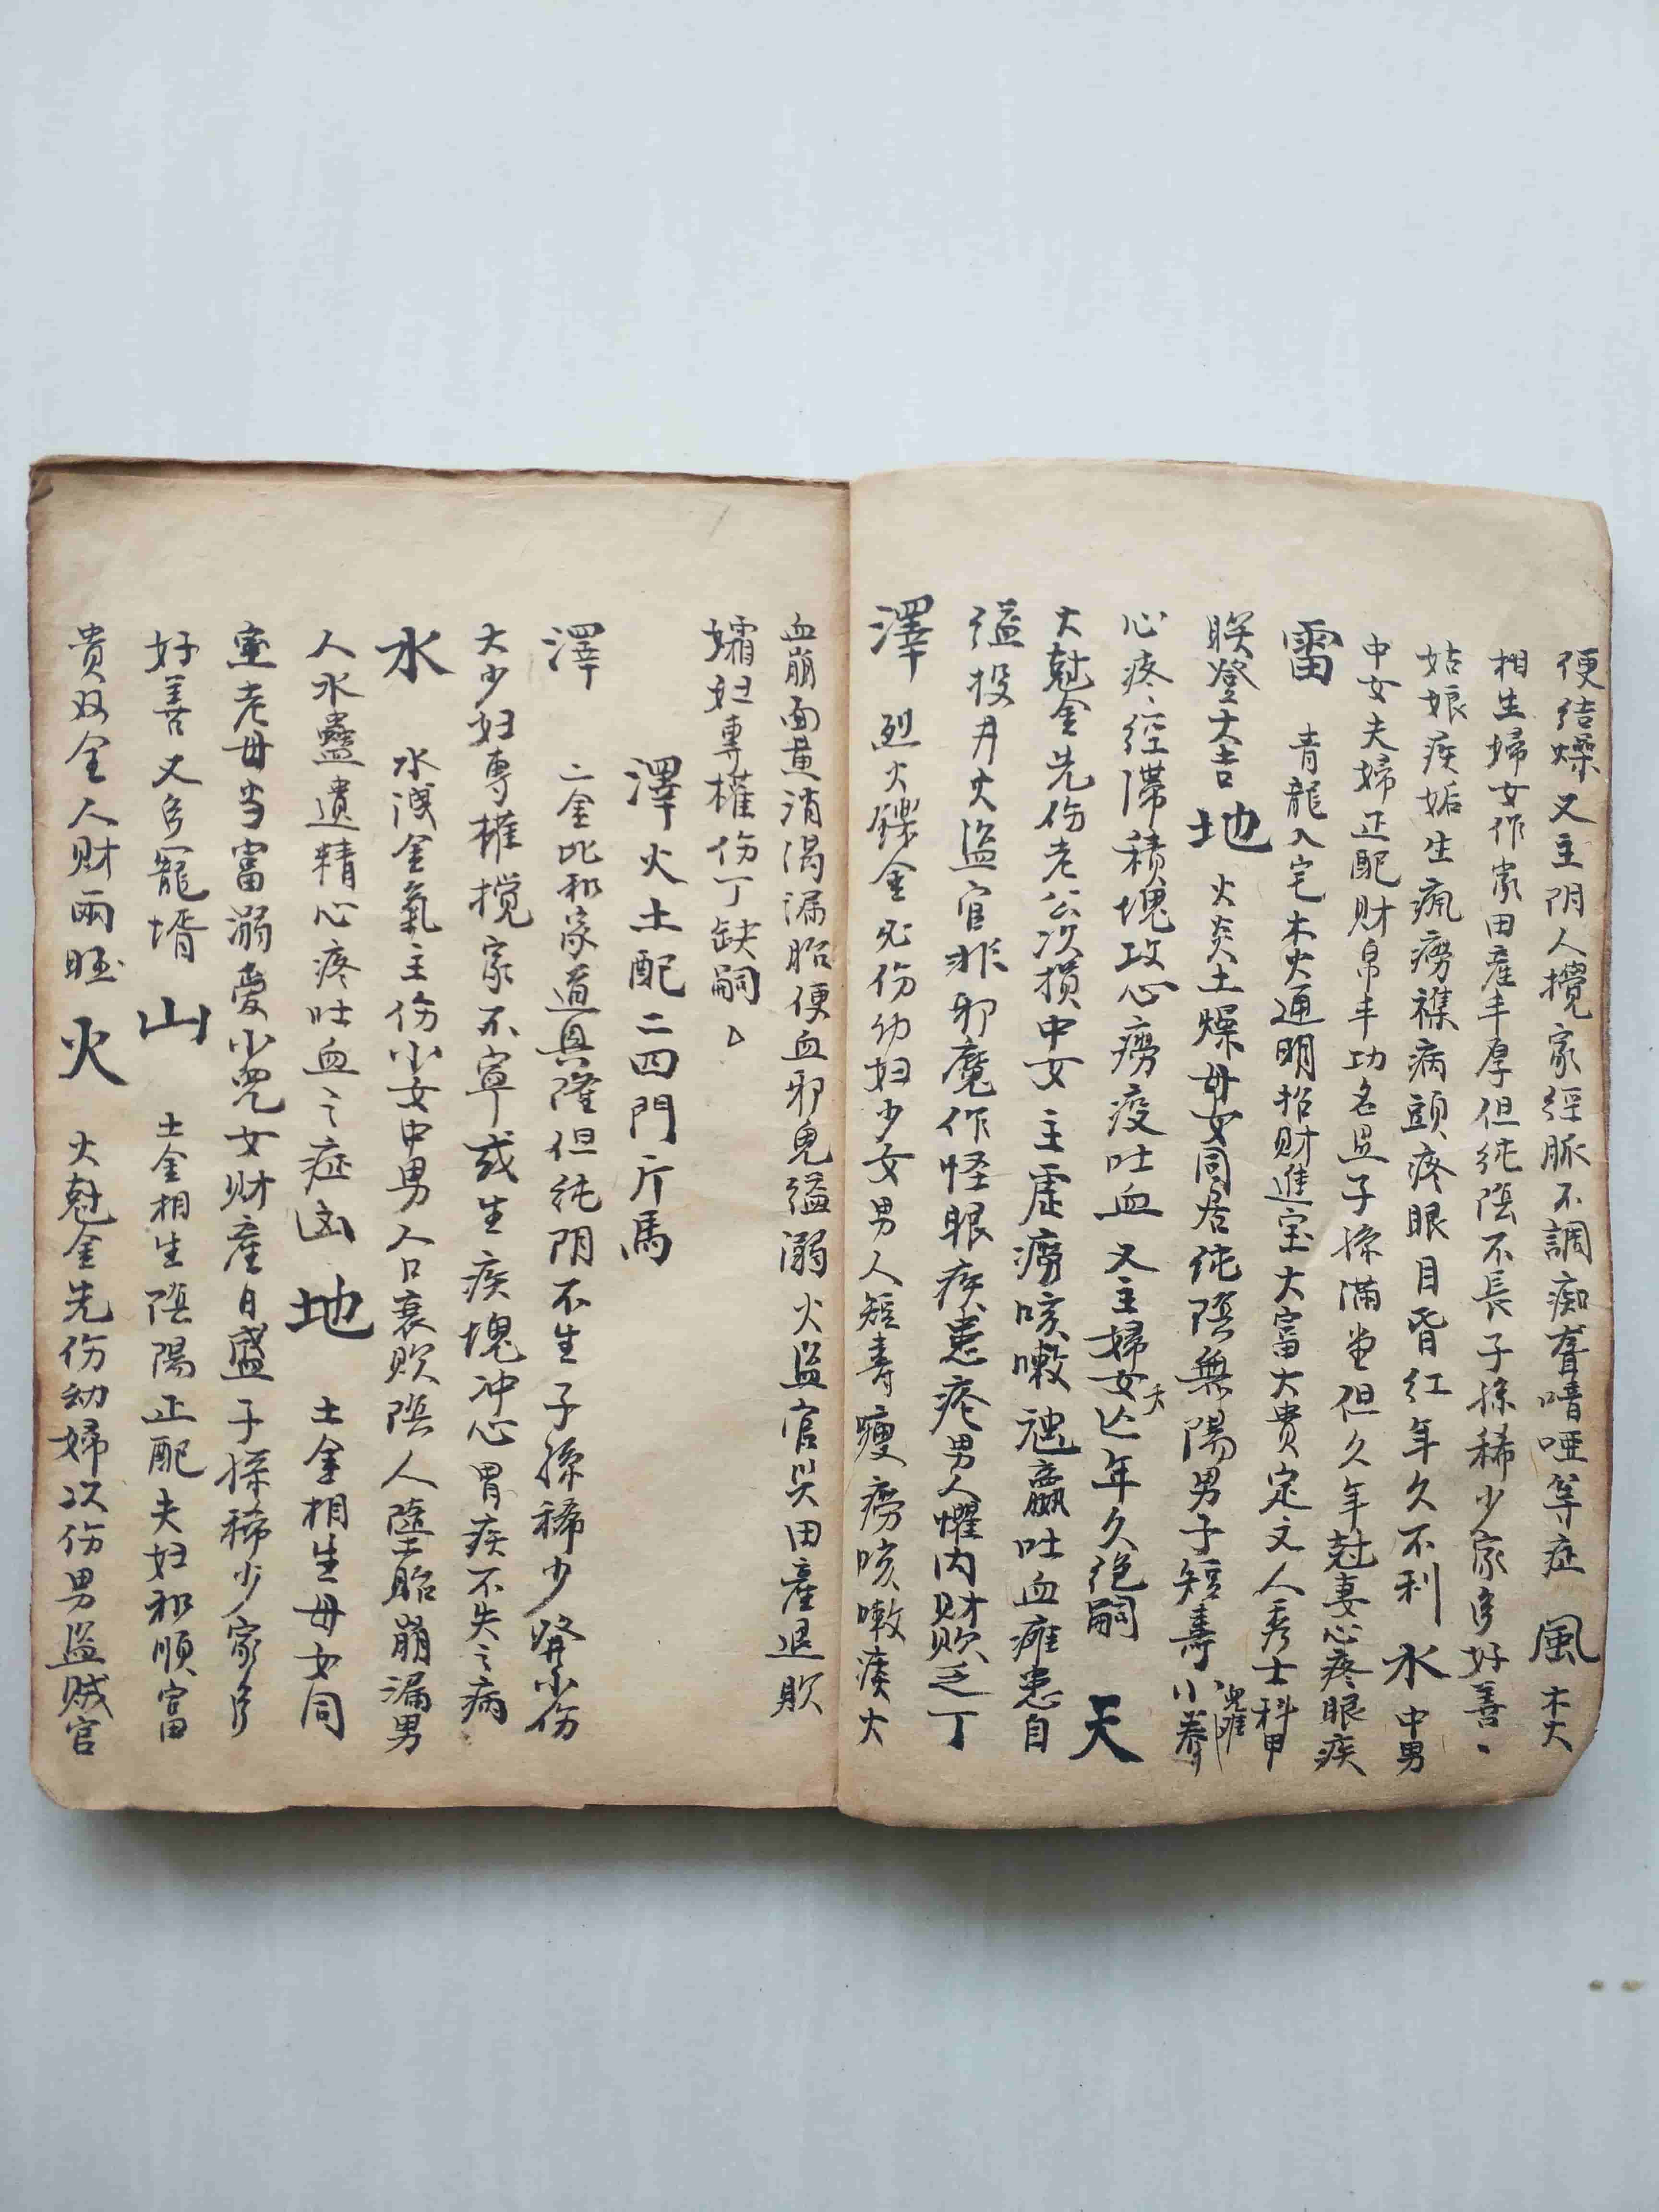 便结燥又主阴人攪家經脈不調痴聋喑哑等症 風 木火
相生婦女作家田產丰厚但纯陰不長子孫稀少家多好善、
姑娘疾妬生瘋癆襍病頭疼眼目昏红年久不利 水 中男
中女夫婦正配财帛丰功名显子孫滿堂但久年尅妻心疼眼疾
雷 青龍入宅木火通明招财進宝大富大贵定文人秀士科甲
联登大吉 地 火炎土燥母女同居纯陰無陽男子短寿小兒难养
心疼經滞積塊攻心癆疫吐血又主婦女夭亡年久绝嗣 天
火尅金先伤老公次损中女主虚癆咳嗽尫羸吐血瘫患自
缢投井火盗官非邪魔作怪眼疾患疮男人懼内财败乏丁
澤 烈火鑠金必伤幼妇少女男人短寿瘦癆咳嗽痰火
血崩面黄消渴漏胎便血邪鬼缢溺火盗官災田產退败
孀妇專權伤丁缺嗣
澤火土配二四門斤馬
澤 二金比和家道興隆但纯阴不生子孫稀少緊小伤
大少妇專權搅家不寧或生疾塊冲心胃疾不失之病
水 水洩金氣主伤少女中男人口衰败陰人墮胎崩漏男
人水蠱遺精心疼吐血之症凶 地 土金相生母女同
室老母当富溺愛小兒女财產日盛子孫稀少家多
好善又多寵婿 山 土金相生陰陽正配夫妇和順富
贵双全人财兩旺 火 火尅金先伤幼婦次伤男盗贼官